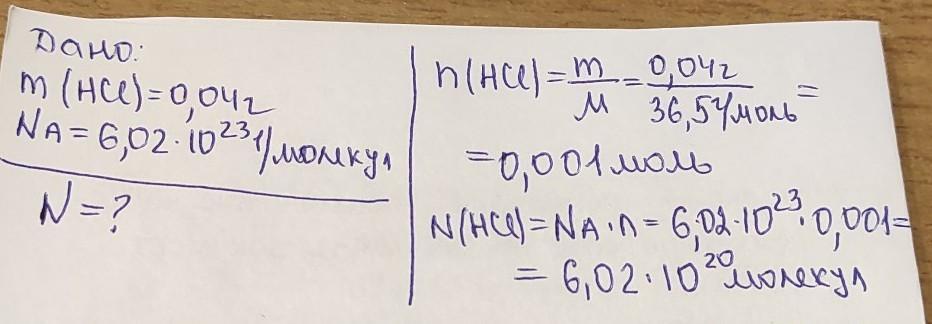 Дано:
m (HCl) = 0,04г
NA = 6,02 · 10²³ 1/молкул
N = ?
n(HCl) = m/M = 0,04г/36,5г/моль =
= 0,001 моль
N(HCl) = NA · n = 6,02 · 10²³ · 0,001 =
= 6,02 · 10²⁰ молекул